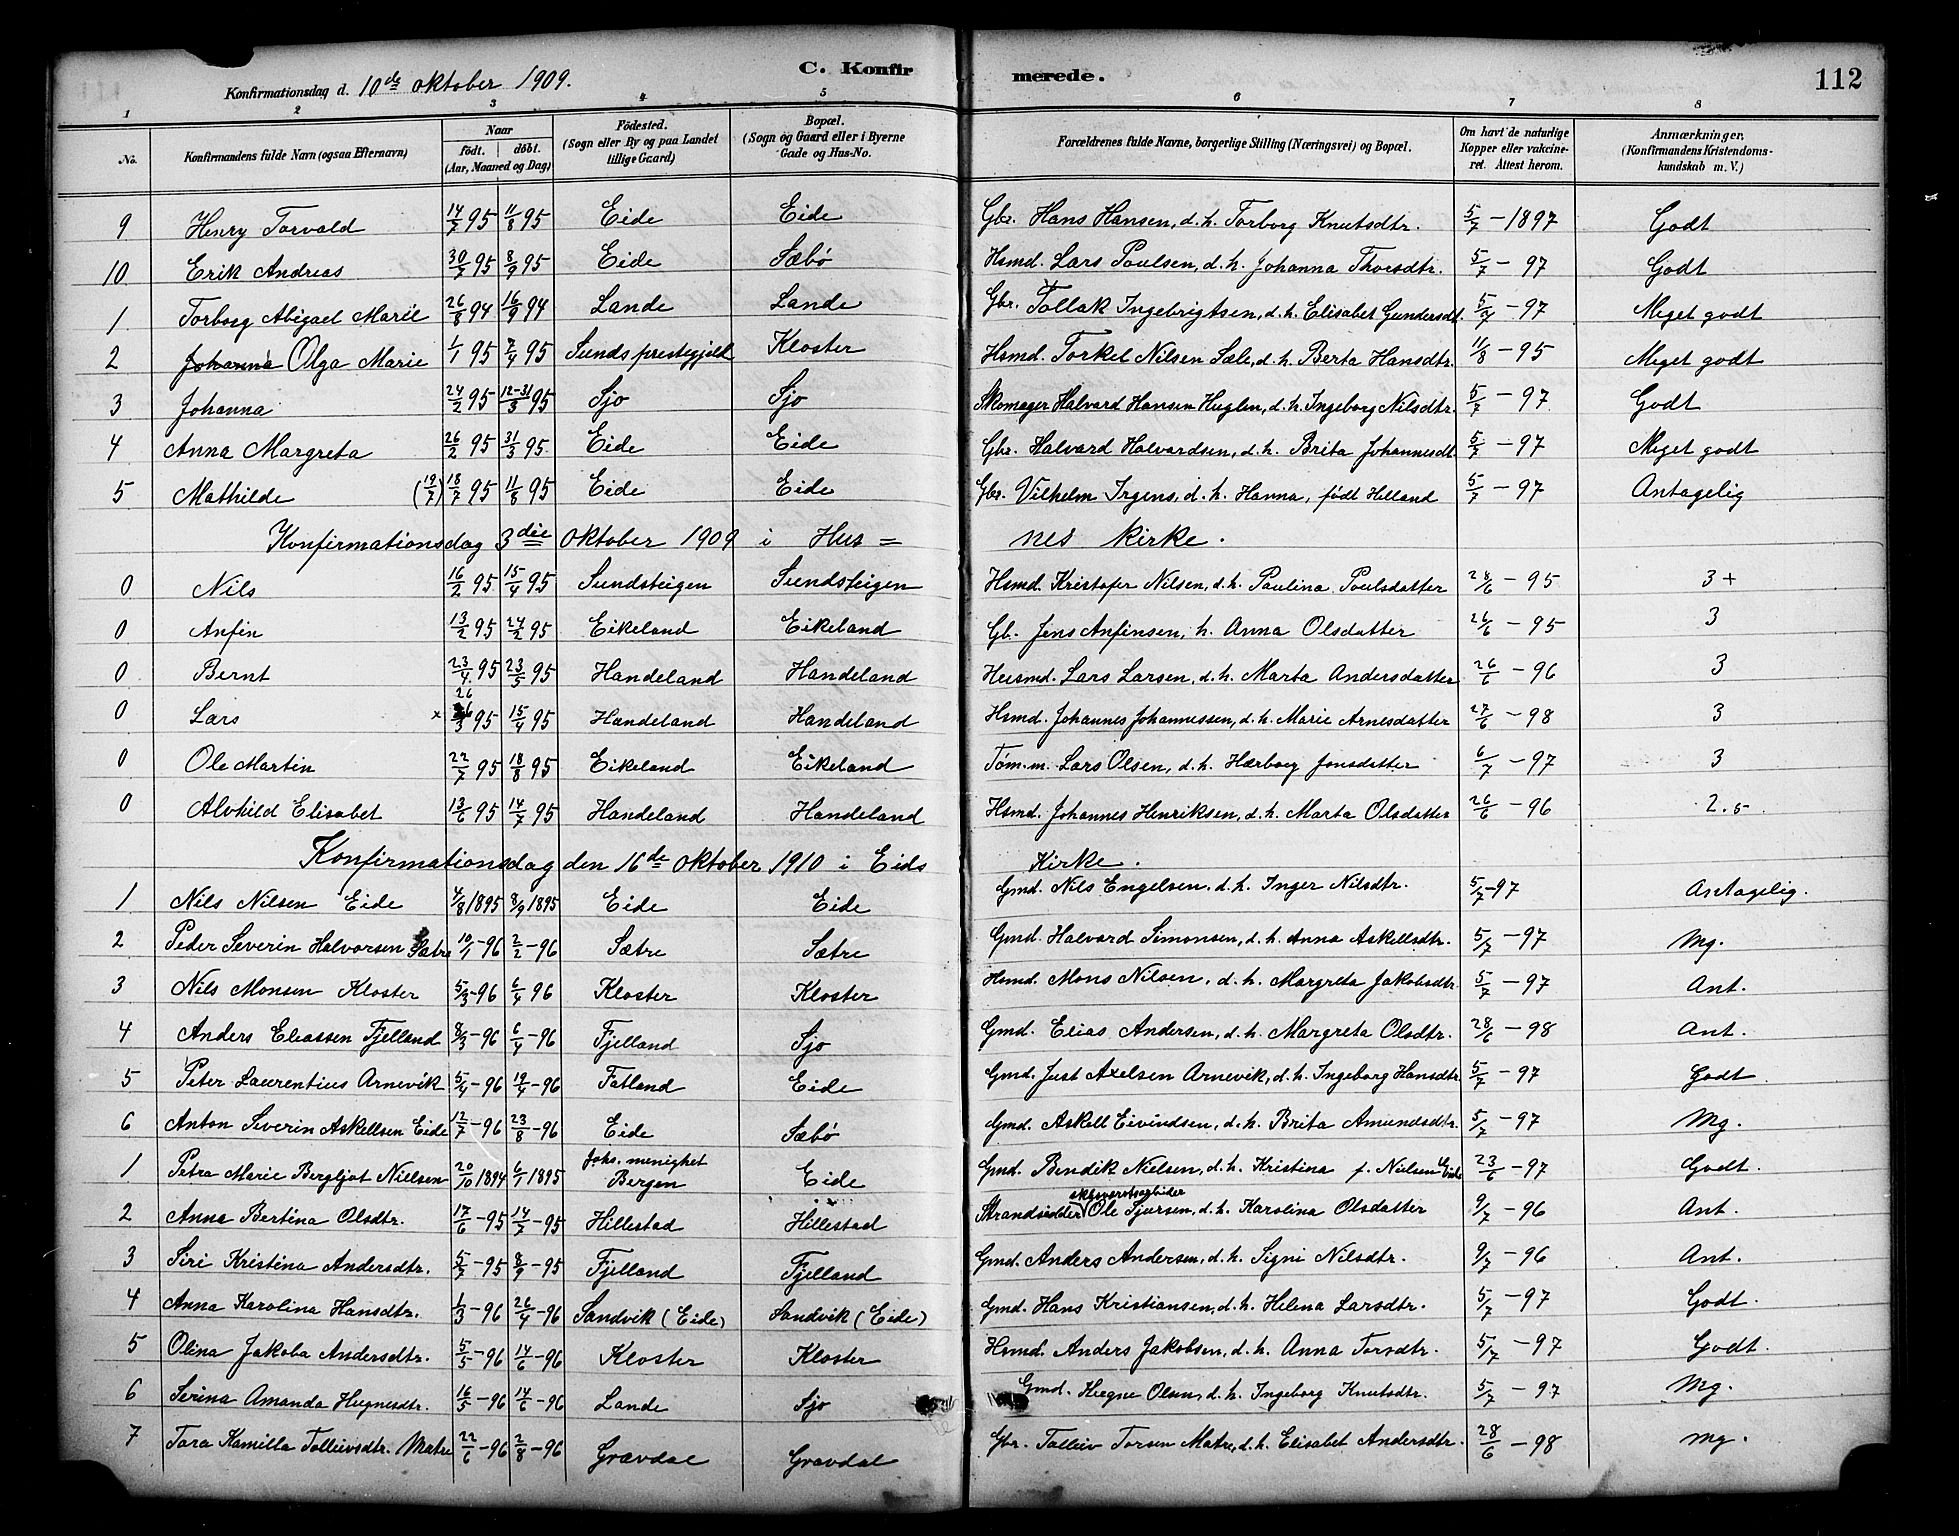 C. Konfirmerede. 112
Konfirmationsdag d. 10de oktober 1909.
1 2 3 4 5 6 7 8
No. Konfirmandens fulde Navn (ogsaa Efternavn) Naar født. døbt. (Aar, Maaned og Dag) Fødested. (Sogn eller By og paa Landet tillige Gaard) Bopæl. (Sogn og Gaard eller i Byerne Gade og Hus-No. Forældrenes fulde Navne, borgerlige Stilling (Næringsvei) og Bopæl. Om havt de naturlige Kopper eller vakcineret. Attest herom. Anmærkninger. (Konfirmandens Kristendomskundskab m. V.)
9 Henry Torvald 14/7 95 11/8 95 Eide Eide Gbr. Hans Hansen, d. h. Torborg Knutsdtr. 5/7 - 1897 Godt
10 Erik Andreas 30/7 95 8/9 95 Eide Sæbø Hsmd. Lars Poulsen, d. h. Johanna Thorsdtr. 5/7 - 97 Godt
1 Torborg Abigael Marie 26/8 94 16/9 94 Lande Lande Gbr. Tollak Ingebrigtsen, d. h. Elisabet Gundersdt. 5/7 - 97 Meget godt
2 Johanna Olga Marie 1/1 95 7/4 95 Sunds prestegjeld Kloster Hsmd. Torkel Nilsen Sæle, d. h. Berta Hansdtr. 11/8 - 95 Meget godt
3 Johanna 24/2 95 12-31/3 95 Sjo Sjo Skomager Halvard Hansen Huglen, d. h. Ingeborg Nilsdtr. 5/7 - 97 Godt
4 Anna Margreta 26/2 95 31/3 95. Eide Eide Gbr. Halvard Halvardsen, d. h. Brita Johannesdt 5/7 - 97 Meget godt
5 Mathilde (19/7) 18/7 95 11/8 95 Eide Eide Gbr. Vilhelm Irgens, d. h. Hanna, født Helland 5/7 - 97 Antagelig
Konfirmationsdag 3die oktober 1909 i Hus= nes kirke.
0 Nils 16/2 95 15/4 95 Sundsteigen Sundsteigen Hsmd. Kristofer Nilsen, d. h. Paulina Poulsdatter 28/6 - 95 3+
0 Anfin 13/2 95 24/2 95 Eikeland Eikeland Gb. Jens Anfinsen, h. Anna Olsdatter 26/6 - 95 3
0 Bernt 23/4 95 23/5 95 Handeland Handeland Husmd. Lars Larsen, d. h. Marta Andersdatter 26/6 - 96 3
0 Lars x 26/3 95 15/4 95 Handeland Handeland Hsmd. Johannes Johannessen, d. h. Marie Arnesdatter 27/6 - 98 3
0 Ole Martin 22/7 95 18/8 95 Eikeland Eikeland Tøm.m. Lars Olsen, d. h. Hærborg Jonsdatter 6/7 - 97 3
0 Alvhild Elisabet 13/6 95 14/7 95 Handeland Handeland Hsmd. Johannes Henriksen, d. h. Marta Olsdatter 26/6 - 96 2.5
Konfirmationsdag den 16de oktober 1910 i Eids Kirke.
1 Nils Nilsen Eide 4/8 1895 8/9 1895 Eide Eide Gmd. Nils Engelsen. d. h. Inger Nilsdtr. 5/7 - 97 Antagelig.
2 Peder Severin Halvorsen Sætre 10/1 - 96 2/2 - 96 Sætre Sætre Gmd. Halvard Simonsen, d. h. Anna Askellsdtr. 5/7 - 97 Mg.
3 Nils Monsen Kloster 5/3 - 96 6/4 96 Kloster Kloster Hsmd. Mons Nilsen, d. h. Margreta Jakobsdtr 5/7 - 97 Ant.
4 Anders Eliassen Fjelland 8/3 - 96 6/4 - 96 Fjelland Sjo Gmd. Elias Andersen, d. h. Margreta Olsdtr. 28/6 - 98 Ant.
5 Peter Laurentius Arnevik 5/4 - 96 19/4 - 96 Fatland Eide Gmd. Just Axelsen Arnevik, d. h. Ingeborg Hansdtr. 5/7 - 97 Godt
6 Anton Severin Askellsen Eide 12/7 - 96 23/8 - 96 Eide Sæbø Gmd. Askell Eivindsen, d. h. Brita Amundsdtr. 5/7 - 97 Mg.
1 Petra Marie Bergljot Nielsen 20/10 1894 6/1 1895 Johs. menighet Bergen Eide Gmd. Bendik Nielsen, d. h. Kristina f. Nielsen Eide 23/6 - 97 Godt.
2 Anna Bertina Olsdtr. 17/6 - 95 14/7 - 95 Hillestad Hillestad Strandsidder Ole Sjursen, d. h. Karolina Olsdatter 9/7 - 96 Ant.
3 Siri Kristina Andersdtr. 5/7 - 95 8/9 - 95 Fjelland Fjelland Gmd. Anders Andersen, d. h. Signi Nilsdtr. 9/7 - 96 Ant.
4 Anna Karolina Hansdtr. 1/3 - 96 26/4 - 96 Sandvik (Eide) Sandvik (Eide) Gmd. Hans Kristiansen, d. h. Helena Larsdtr. 5/7 - 97 Godt.
5 Olina Jakoba Andersdtr. 5/5 - 96 14/6 - 96 Kloster Kloster Hsmd. Anders Jakobsen, d. h. Anna Torsdtr. 5/7 - 97 Godt.
6 Serina Amanda Hugnesdtr. 16/5 - 96 14/6 - 96 Lande Sjo Gmd. Hugne Olsen, d. h. Ingeborg Knutsdtr. 5/7 - 97 Mg.
7 Tara Kamilla Tolleivsdtr. Matre 22/6 - 96 2/8 - 96 Grævdal Gravdal Gbr. Tolleiv Torsen Matre, d. h. Elisabet Andersdtr. 28/6 - 98 Mg.